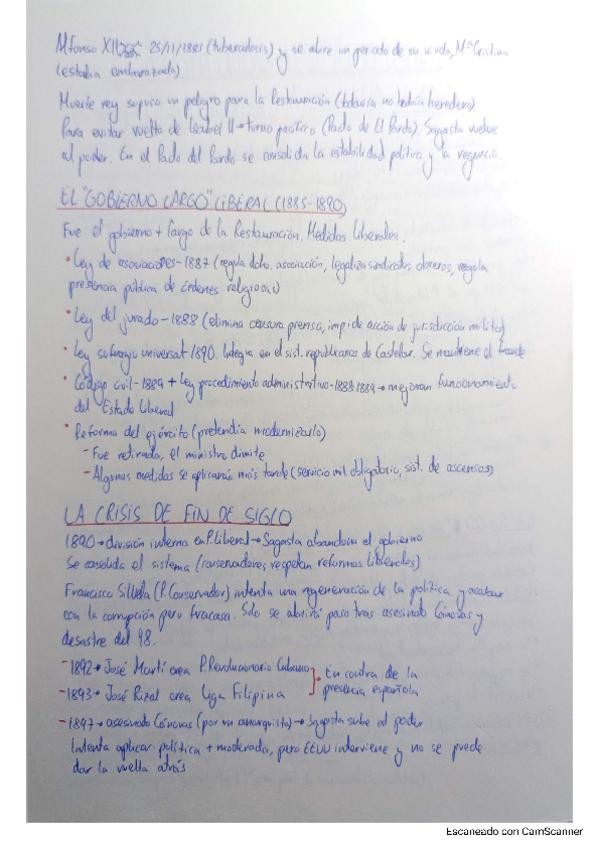 Alfonso XII 25/11/1885 (tuberculosis) y se abre un periodo de su viuda, Mª Cristina
(estaba embarazada)
Muerte rey supuso un peligro para la Restauración (todavía no había heredero)
Para evitar vuelta de Isabel II → turno pacífico (Pacto de El Pardo). Sagasta vuelve
al poder. En el Pacto del Pardo se consolida la estabilidad política y la regencia.
EL "GOBIERNO LARGO" LIBERAL (1885-1890)
Fue el gobierno + largo de la Restauración. Medidas liberales.
• Ley de asociaciones - 1887 (regula dcho. asociación, legaliza sindicatos obreros, regula
presencia pública de órdenes religiosas)
• Ley del jurado - 1888 (elimina censura prensa, impide acción de jurisdicción militar)
• Ley sufragio universal - 1890. Integra en el sist. republicanos de Castelar. Se mantiene el fraude
• Código civil - 1889 + Ley procedimiento administrativo - 1888 1889 → mejoran funcionamiento
del Estado Liberal
• Reforma del ejército (pretendía modernizarlo)
- Fue retirada, el ministro dimite
- Algunas medidas se aplicarán más tarde (servicio mil. obligatorio, sist. de ascensos)
LA CRISIS DE FIN DE SIGLO
1890 → división interna en P. Liberal → Sagasta abandona el gobierno
Se consolida el sistema (conservadores respetan reformas liberales)
Francisco Silvela (P. Conservador) intenta una regeneración de la política y acabar
con la corrupción pero fracasa. Solo se abrirá paso tras asesinato Cánovas y
desastre del 98.
- 1892 → José Martí crea P. Revolucionario Cubano
- 1893 → José Rizal crea Liga Filipina
En contra de la
presencia española
- 1897 → asesinado Cánovas (por un anarquista) → Sagasta sube al poder
Intenta aplicar política + moderada, pero EEUU interviene y no se puede
dar la vuelta atrás
Escaneado con CamScanner